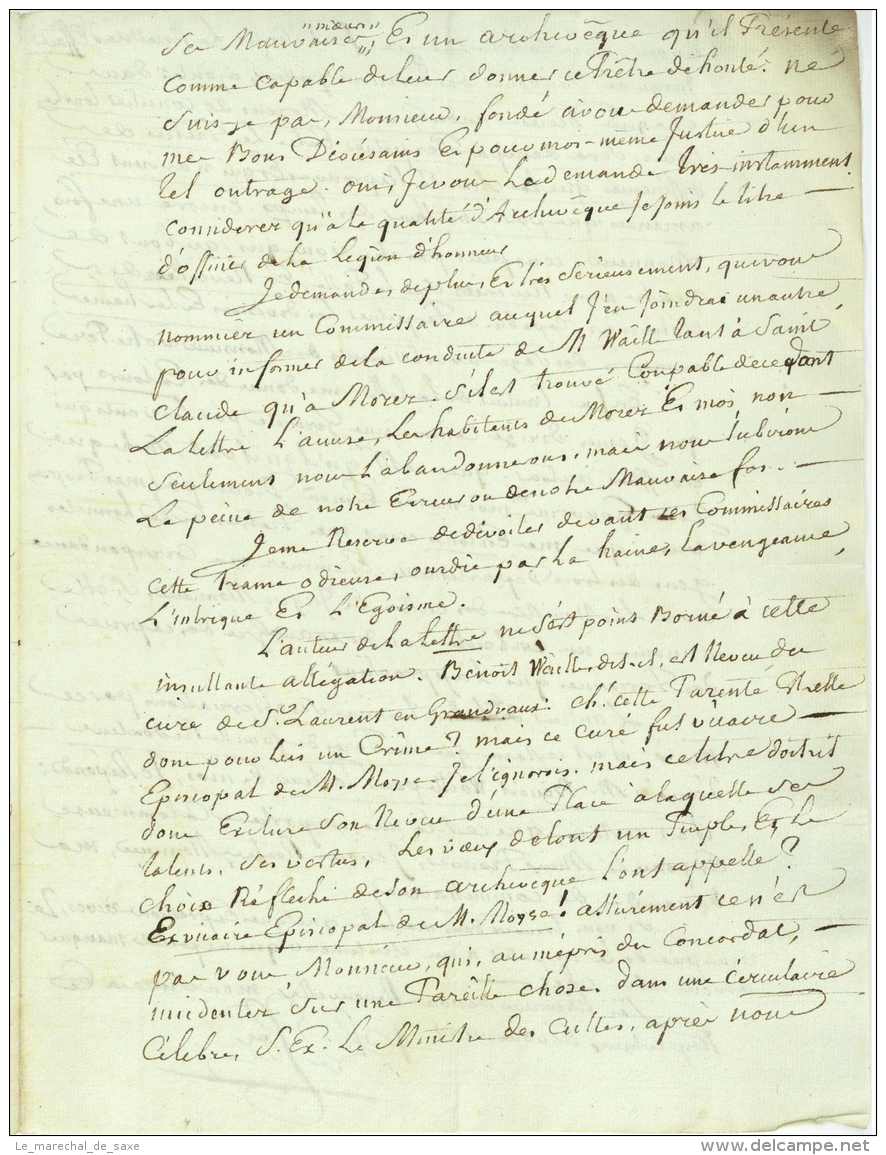 "mœurs"
Ses Mauvaises, Et un archevêque qu'il Présente
Comme Capable de leur donner ce Prêtre dehonté. ne
Suis-je pas, Monsieur, fondé à vous demander pour
mes Bons Diocésains Et pour moi-même Justice d'un
tel outrage. oui, Je vous La demande très-instamment.
Considerez qu'à la qualité d'Archevêque Je Joins le titre —
d'officier de la Legion d'honneur
Je demande, de plus, Et très Serieusement, que vous
nommiez un Commissaire auquel J'en Joindrai un autre,
pour informer de la conduite de M Waille tant à Saint
Claude qu'à Morez. S'il est trouvé Coupable de ce dont
La lettre L'accuse, Les habitants de Morez Et moi, non —
Seulement nous L'abandonnerons, mais nous Subirons
La peine de notre Erreur ou de notre Mauvaise foi. —
Je me Reserve de dévoiler devant ces Commissaires
Cette trame odieuse, ourdie par la haine, La vengeance,
L'intrigue Et L'Egoisme.
L'auteur de la lettre ne S'est point Borné à cette
insultante allégation. Benoît Waille, dit-il, est Neveu du
curé de St. Laurent en Grandvaux: Eh! cette Parenté Est elle
donc pour Lui un Crime? mais ce curé fut vicaire —
Episcopal de M. Moyse. Je l'ignorois. mais ce titre doit-il
donc Exclure Son Neveu d'une Place à laquelle Ses
talens, Ses vertus, Les vœux de tout un Peuple, Et Le
choix Réfléchi de Son archevêque L'ont appellé?
Ex vicaire Episcopal de M. Moyse! assurément ce n'est
pas vous Monsieur, qui, au mépris du Concordat, —
m'identez Sur une Pareille chose. dans une Circulaire
Célebre, S. Ex. Le Ministre des Cultes, après nous
Le_marechal_de_saxe
delcampe.net